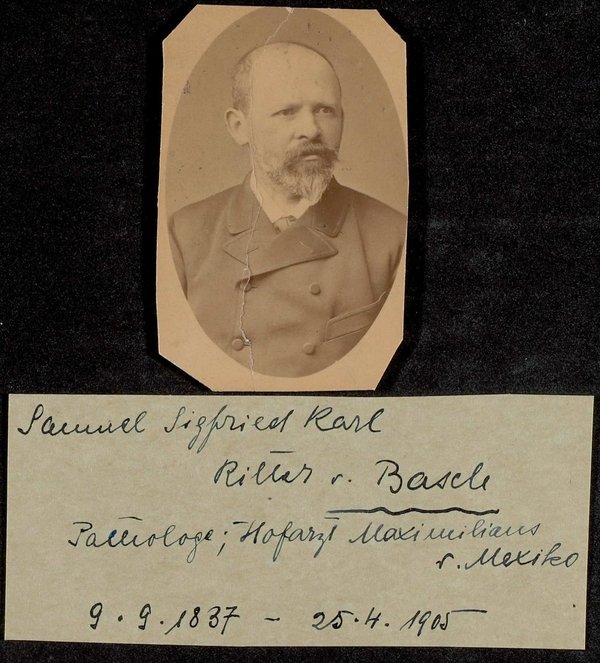 Samuel Sigfried Karl
Ritter v. Basch
Pathologe; Hofarzt Maximilians
v. Mexiko
9.9.1837 - 25.4.1905